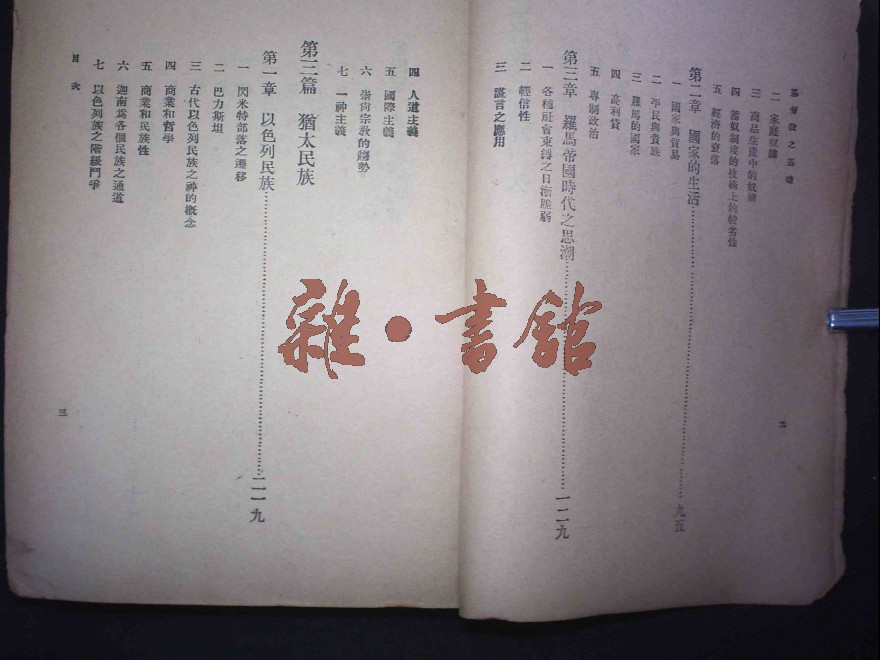 基督教之基礎
二 家庭奴隸
三 商品生產中的奴隸
四 蓄奴制度的技術上的較劣性
五 經濟的衰落
第二章 國家的生活……九五
一 國家與貿易
二 平民與貴族
三 羅馬的國家
四 高利貸
五 專制政治
第三章 羅馬帝國時代之思潮……一二九
一 各種社會束縛之日漸脆弱
二 輕信性
三 謊言之應用
二
四 人道主義
五 國際主義
六 宗教的趨勢
七 一神主義
第三篇 猶太民族
第一章 以色列民族……二一九
一 閃米特部落之遷移
二 巴力斯坦
三 古代以色列民族之神的概念
四 商業和哲學
五 商業和民族性
六 迦南為各個民族之通道
七 以色列族之階級鬥爭
目次
三
雜•書館